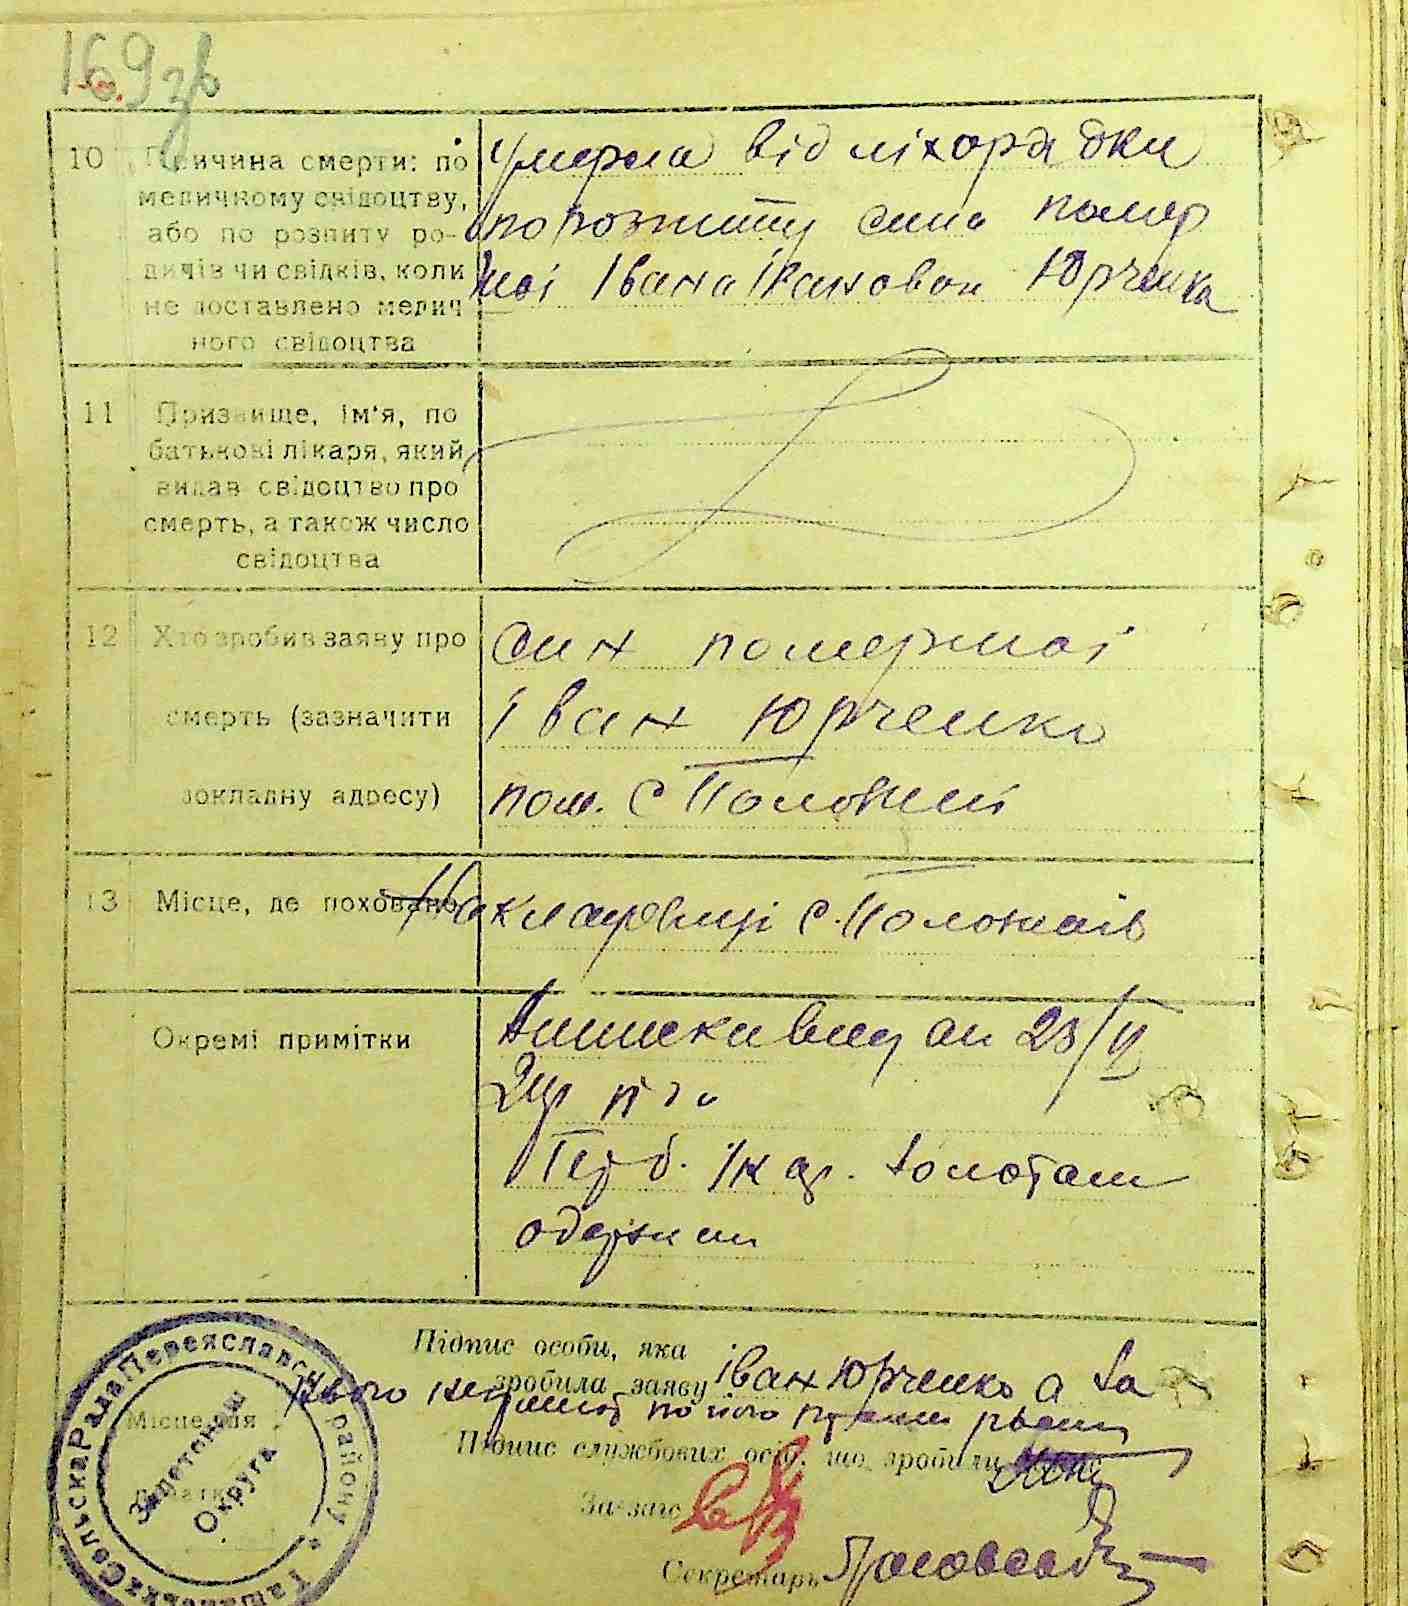 169 зв
10 Причина смерти: по
медичному свідоцтву,
або по розпиту ро-
дичів чи свідків, коли
не доставлено медич
ного свідоцтва
умерла від ліхорадки
по розпиту сина помер
шої Івана Івановича Юрченка
11 Призвище, ім'я, по
батькові лікаря, який
видав свідоцтво про
смерть, а також число
свідоцтва
12 Хто зробив заяву про
смерть (зазначити
докладну адресу)
син помершої
Іван Юрченко
пом. с Положаї
13 Місце, де поховано
На кладовищі с. Положаїв
Окремі примітки
Виписки видані 23/VI
Герб. 1 кар. золотом
одержані
Підпис особи, яка
зробила заяву Іван Юрченко а за
його неграмот по його
Підпис службових осіб, що зробили
Зав загс
Секретарь
Місце для
печатки
Сельска Рада Переяславськ району
Ташанська
Округа